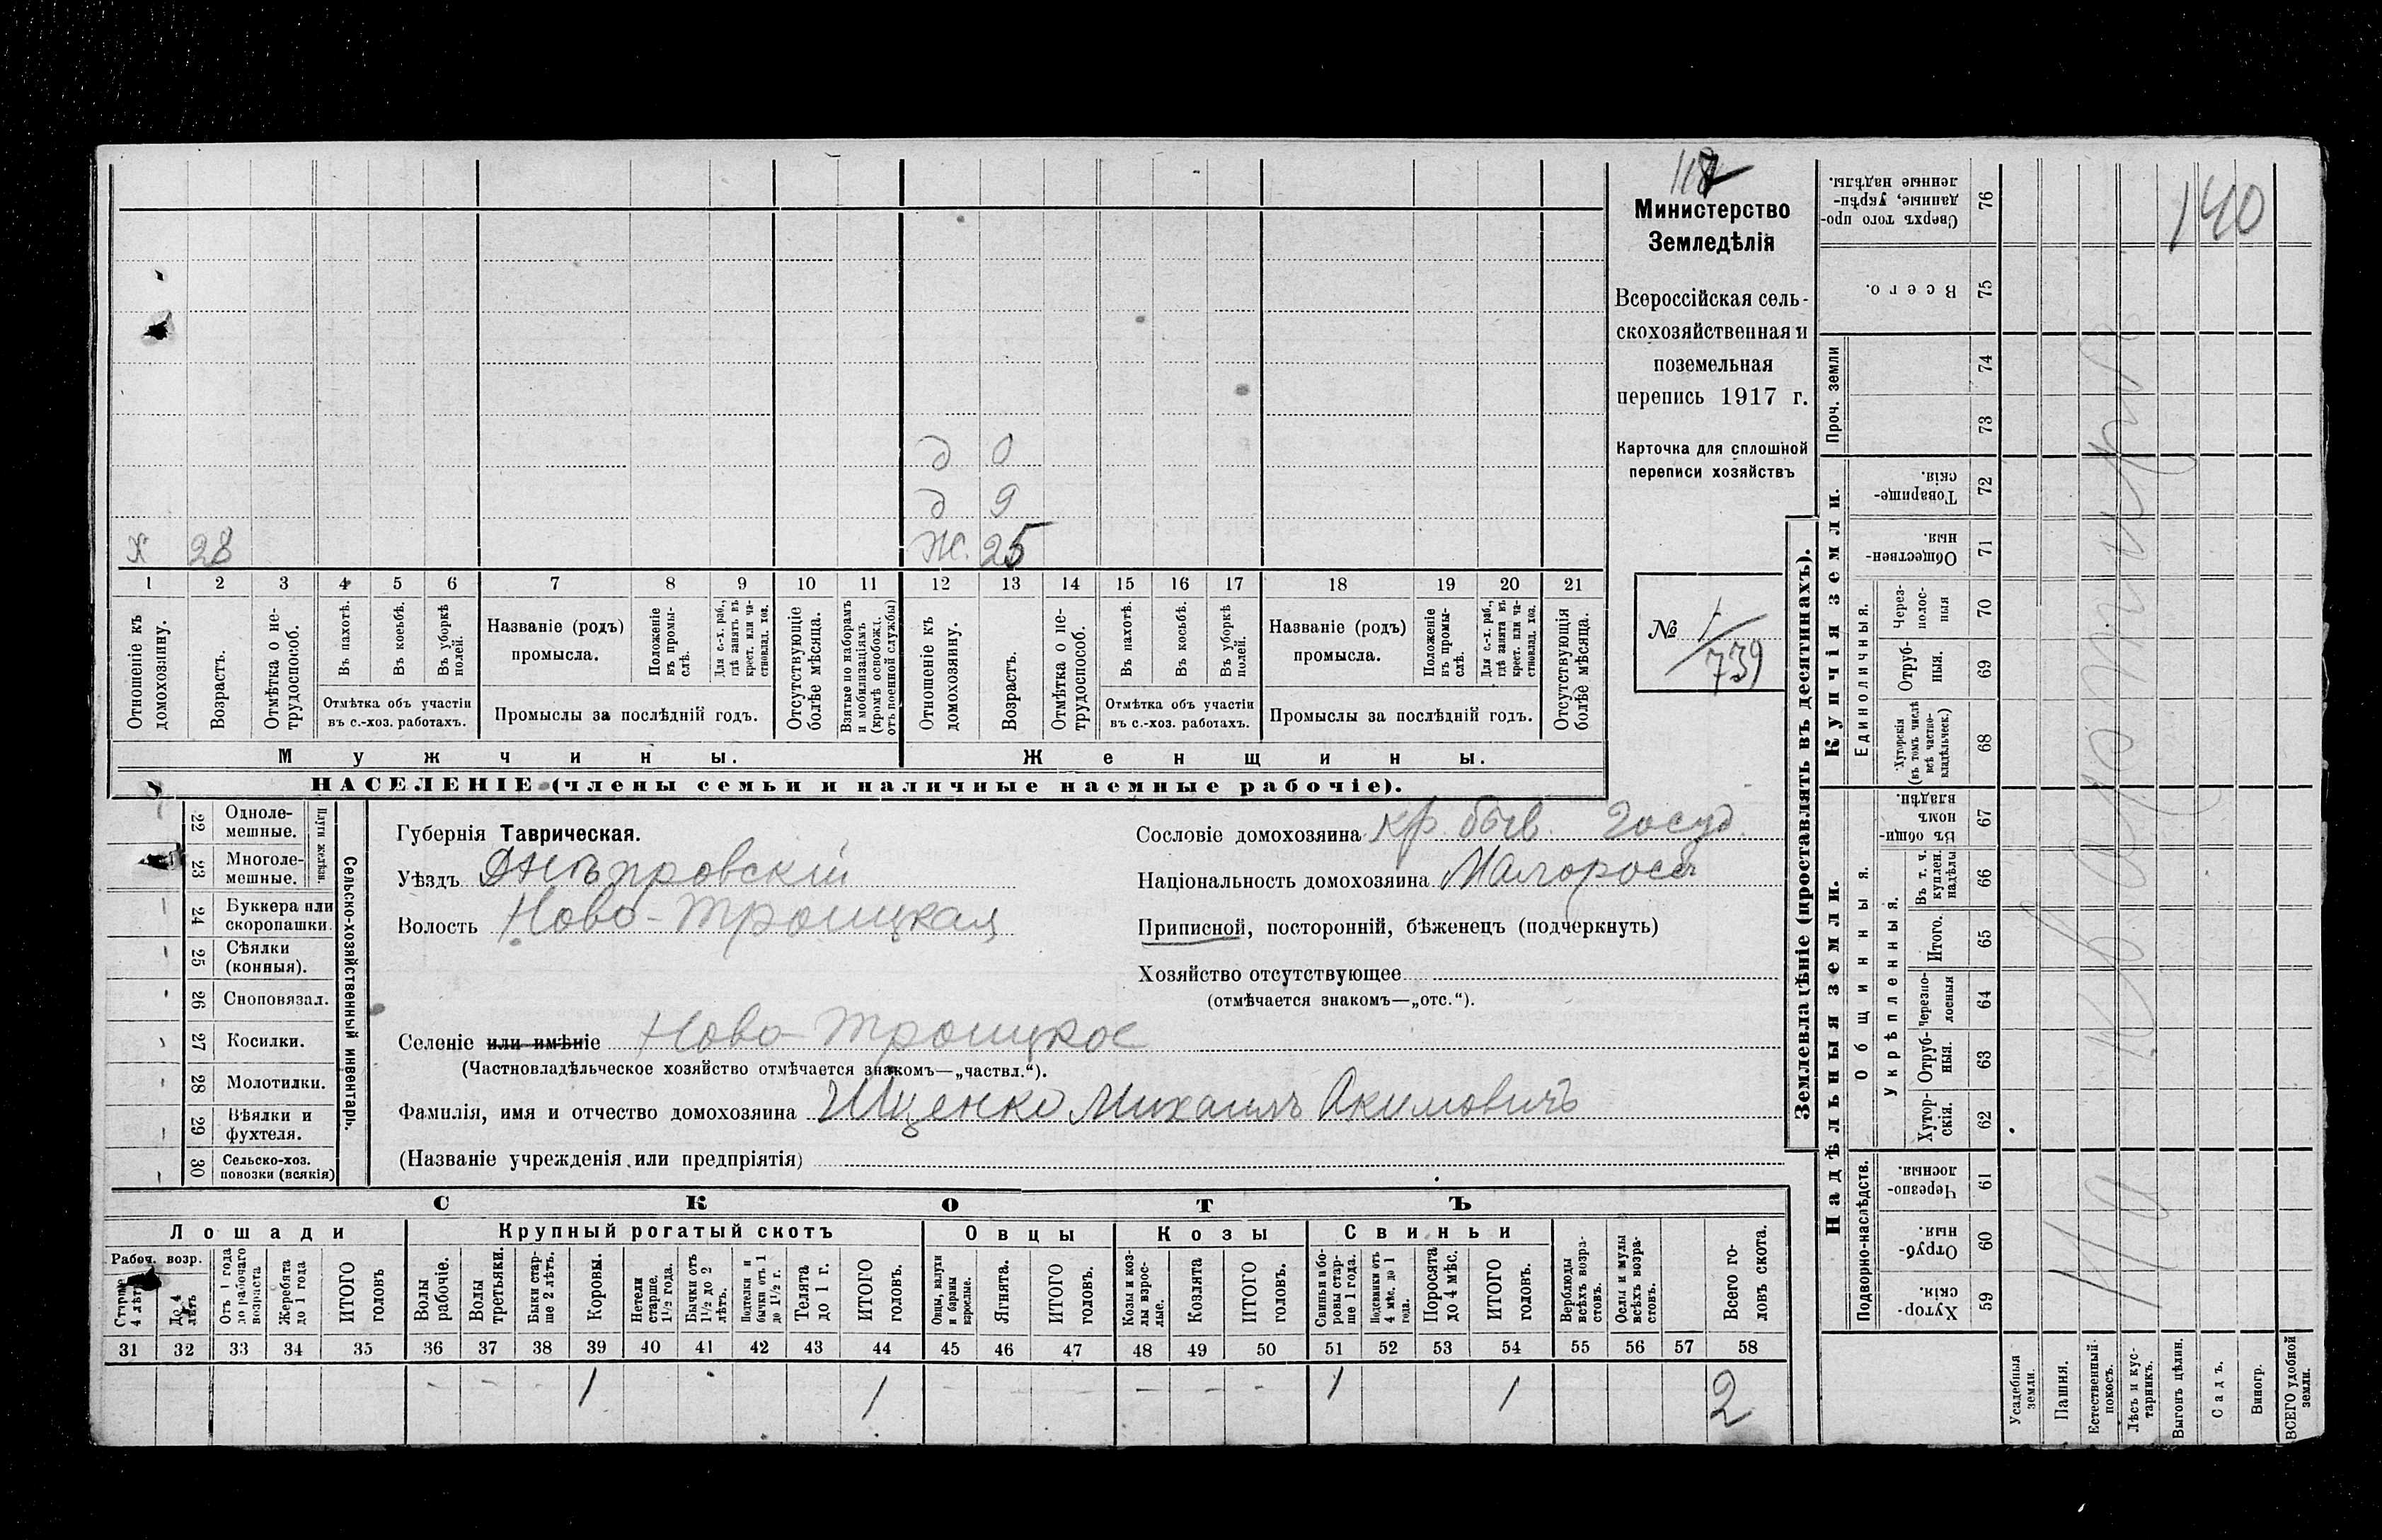 118
140
Министерство
Земледѣлія
Всероссійская сель-
скохозяйственная и
поземельная
перепись 1917 г.
Карточка для сплошной
переписи хозяйствъ
№ 1/739
д 0
д 9
Х 28 Ж. 25
1 2 3 4 5 6 7 8 9 10 11 12 13 14 15 16 17 18 19 20 21
Отношеніе къ домохозяину.
Возрастъ.
Отмѣтка о не-трудоспособ.
Въ пахотѣ.
Въ косьбѣ.
Въ уборкѣ полей.
Отмѣтка объ участіи
въ с.-хоз. работахъ.
Названіе (родъ)
промысла.
Положеніе въ промы-слѣ.
Для с.-х. раб., гдѣ занятъ въ крест. или ча-стновлад. хоз.
Промыслы за послѣдній годъ.
Отсутствующіе болѣе мѣсяца.
Взятые по наборамъ и мобилизаціямъ (кромѣ освобожд. отъ военной службы)
Отношеніе къ домохозяину.
Возрастъ.
Отмѣтка о не-трудоспособ.
Въ пахотѣ.
Въ косьбѣ.
Въ уборкѣ полей.
Отмѣтка объ участіи
въ с.-хоз. работахъ.
Названіе (родъ)
промысла.
Положеніе въ промы-слѣ.
Для с.-х. раб., гдѣ занята въ крест. или ча-стновлад. хоз.
Промыслы за послѣдній годъ.
Отсутствующія болѣе мѣсяца.
Мужчины. Женщины.
НАСЕЛЕНІЕ (члены семьи и наличные наемные рабочіе).
Сельско-хозяйственный инвентарь.
Плуги желѣзн.
22 Одноле-мешные.
23 Многоле-мешные.
24 Буккера или скоропашки.
25 Сѣялки (конныя).
26 Сноповязал.
27 Косилки.
28 Молотилки.
29 Вѣялки и фухтеля.
30 Сельско-хоз. повозки (всякія)
Губернія Таврическая.
Уѣздъ Днѣпровскій
Волость Ново-Троицкая
Сословіе домохозяина кр. быв. госуд.
Національность домохозяина Малороссъ
Приписной, посторонній, бѣженецъ (подчеркнуть)
Хозяйство отсутствующее
(отмѣчается знакомъ—„отс.“).
Селеніе или имѣніе Ново-Троицкое
(Частновладѣльческое хозяйство отмѣчается знакомъ—„частвл.“).
Фамилія, имя и отчество домохозяина Ищенко Михаилъ Акимовичъ
(Названіе учрежденія или предпріятія)
СКОТЪ
Лошади Крупный рогатый скотъ Овцы Козы Свиньи
Рабоч. возр.
Старше 4 лѣтъ
До 4 лѣтъ
Отъ 1 года до рабочаго возраста
Жеребята до 1 года
ИТОГО головъ
Волы рабочіе.
Волы третьяки.
Быки стар-ше 2 лѣтъ.
Коровы.
Нетели старше. 1½ года.
Бычки отъ 1½ до 2 лѣтъ.
Подтелки и бычки отъ 1 до 1½ г.
Телята до 1 г.
ИТОГО головъ.
Овцы, валухи и бараны взрослые.
Ягнята.
ИТОГО головъ.
Козы и коз-лы взрос-лые.
Козлята
ИТОГО головъ.
Свиньи и бо-ровы стар-ше 1 года.
Подсвинки отъ 4 мѣс. до 1 года.
Поросята до 4 мѣс.
ИТОГО головъ.
Верблюды всѣхъ возра-стовъ.
Ослы и мулы всѣхъ возра-стовъ.
Всего го-ловъ скота.
31 32 33 34 35 36 37 38 39 40 41 42 43 44 45 46 47 48 49 50 51 52 53 54 55 56 57 58
- - - 1 1 - - - - - - 1 1 2
Землевладѣніе (проставлять въ десятинахъ).
Надѣльныя земли. Купчія земли.
Подворно-наслѣдств.
Общинныя.
Укрѣпленныя.
Единоличныя.
Проч. земли
76 Сверхъ того про-данные, укрѣп-ленные надѣлы.
75 Всего.
74
73
72 Товарище-скія.
71 Обществен-ныя.
70 Через-полос-ныя
69 Отруб-ныя.
68 Хуторскія (въ томъ числѣ всѣ частно-владѣльческ.)
67 Въ общин-номъ владѣн.
66 Въ т. ч. куплен. надѣлы
65 Итого.
64 Черезпо-лосныя
63 Отруб-ныя.
62 Хутор-скія.
61 Черезпо-лосныя
60 Отруб-ныя.
59 Хутор-скія.
На квартирѣ
Усадебныя земли.
Пашня.
Естественный покосъ.
Лѣсъ и кус-тарникъ.
Выгонъ цѣлин.
Садъ.
Виногр.
ВСЕГО удобной земли.